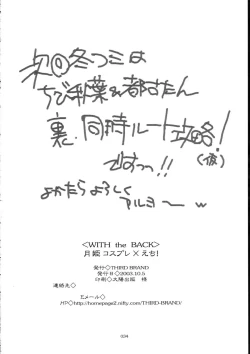 次回冬コミは
ちび秋葉&都古たん
裏・同時ルート攻略!
(仮)
ですっっ!!
よかたらよろしく
アルヨ〜 w
<WITH the BACK>
月姫 コスプレ×えち!
発行◇THIRD BRAND
発行日◇2003.10.5
印刷◇太陽出版 様
連絡先◇
Eメール◇
HP◇http://homepage2.nifty.com/THIRD-BRAND/
034